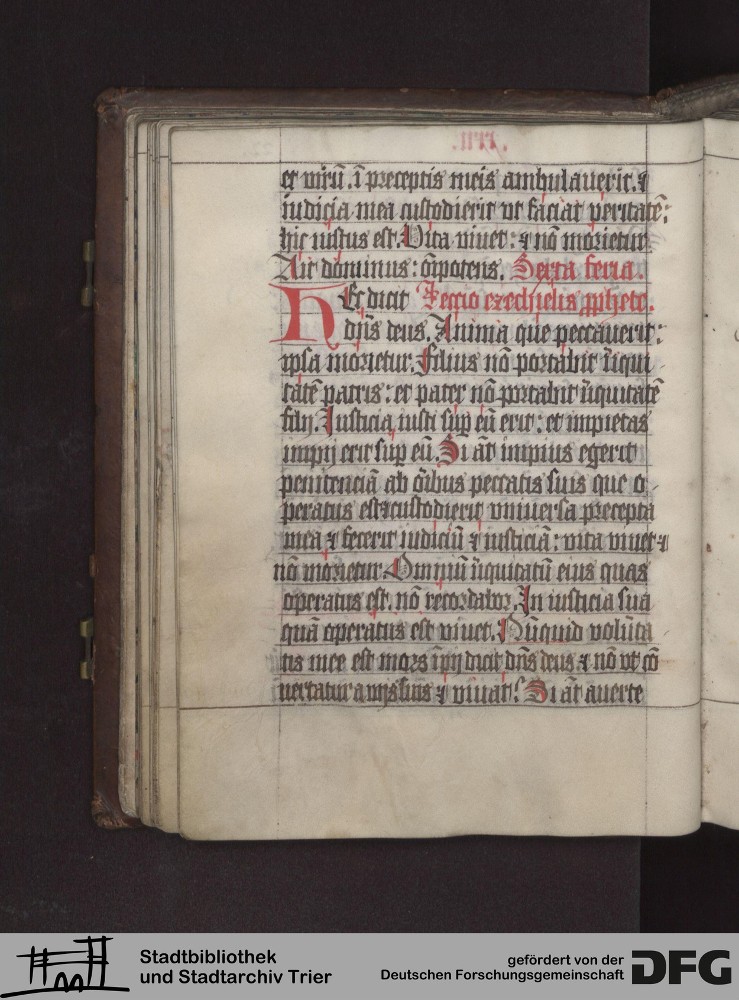 et virū. ī preceptis meis ambulauerit. ⁊
iudicia mea custodierit vt faciat veritatē:
hic iustus est. Vita viuet: ⁊ nō morietur
Ait dominus: ōipotens. Sexta feria.
Hec dicit Leccio ezechielis ꝓphete.
dn̄s deus. Anima que peccauerit:
ipsa morietur. Filius nō portabit īiqui
tatē patris: et pater nō portabit īiquitatē
filij. Iusticia iusti suꝑ eū erit: et impietas
impij erit suꝑ eū. Si āt impius egerit
penitenciā ab oībus peccatis suis que o
peratus est ⁊ custodierit vniuersa precepta
mea ⁊ fecerit iudiciū ⁊ iusticiā: vita viuet ⁊
nō morietur. Omniū īiquitatū eius quas
operatus est. nō recordabor. In iusticia sua
quā operatus est viuet. Nūquid volūta
tis mee est mors īpij dicit dn̄s deus ⁊ nō vt cō
uertatur a vijs suis ⁊ viuat? Si āt auerte
Stadtbibliothek
und Stadtarchiv Trier
gefördert von der
Deutschen Forschungsgemeinschaft
DFG